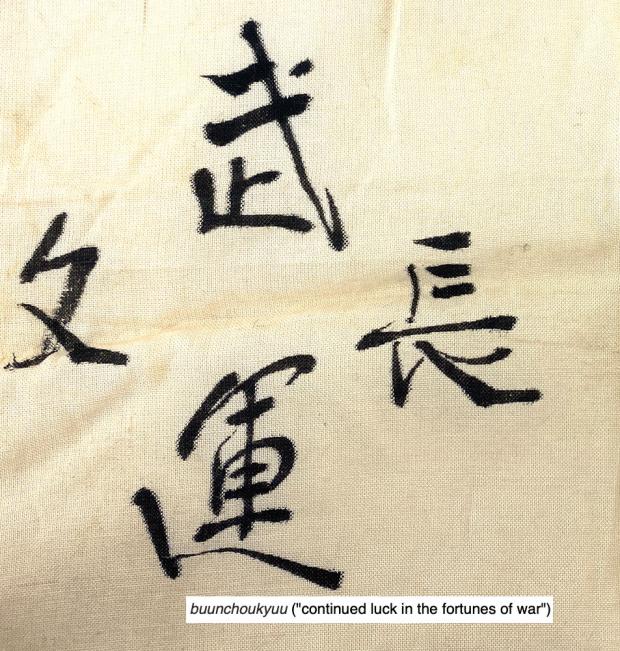 武
運
長
久
buunchoukyuu ("continued luck in the fortunes of war")